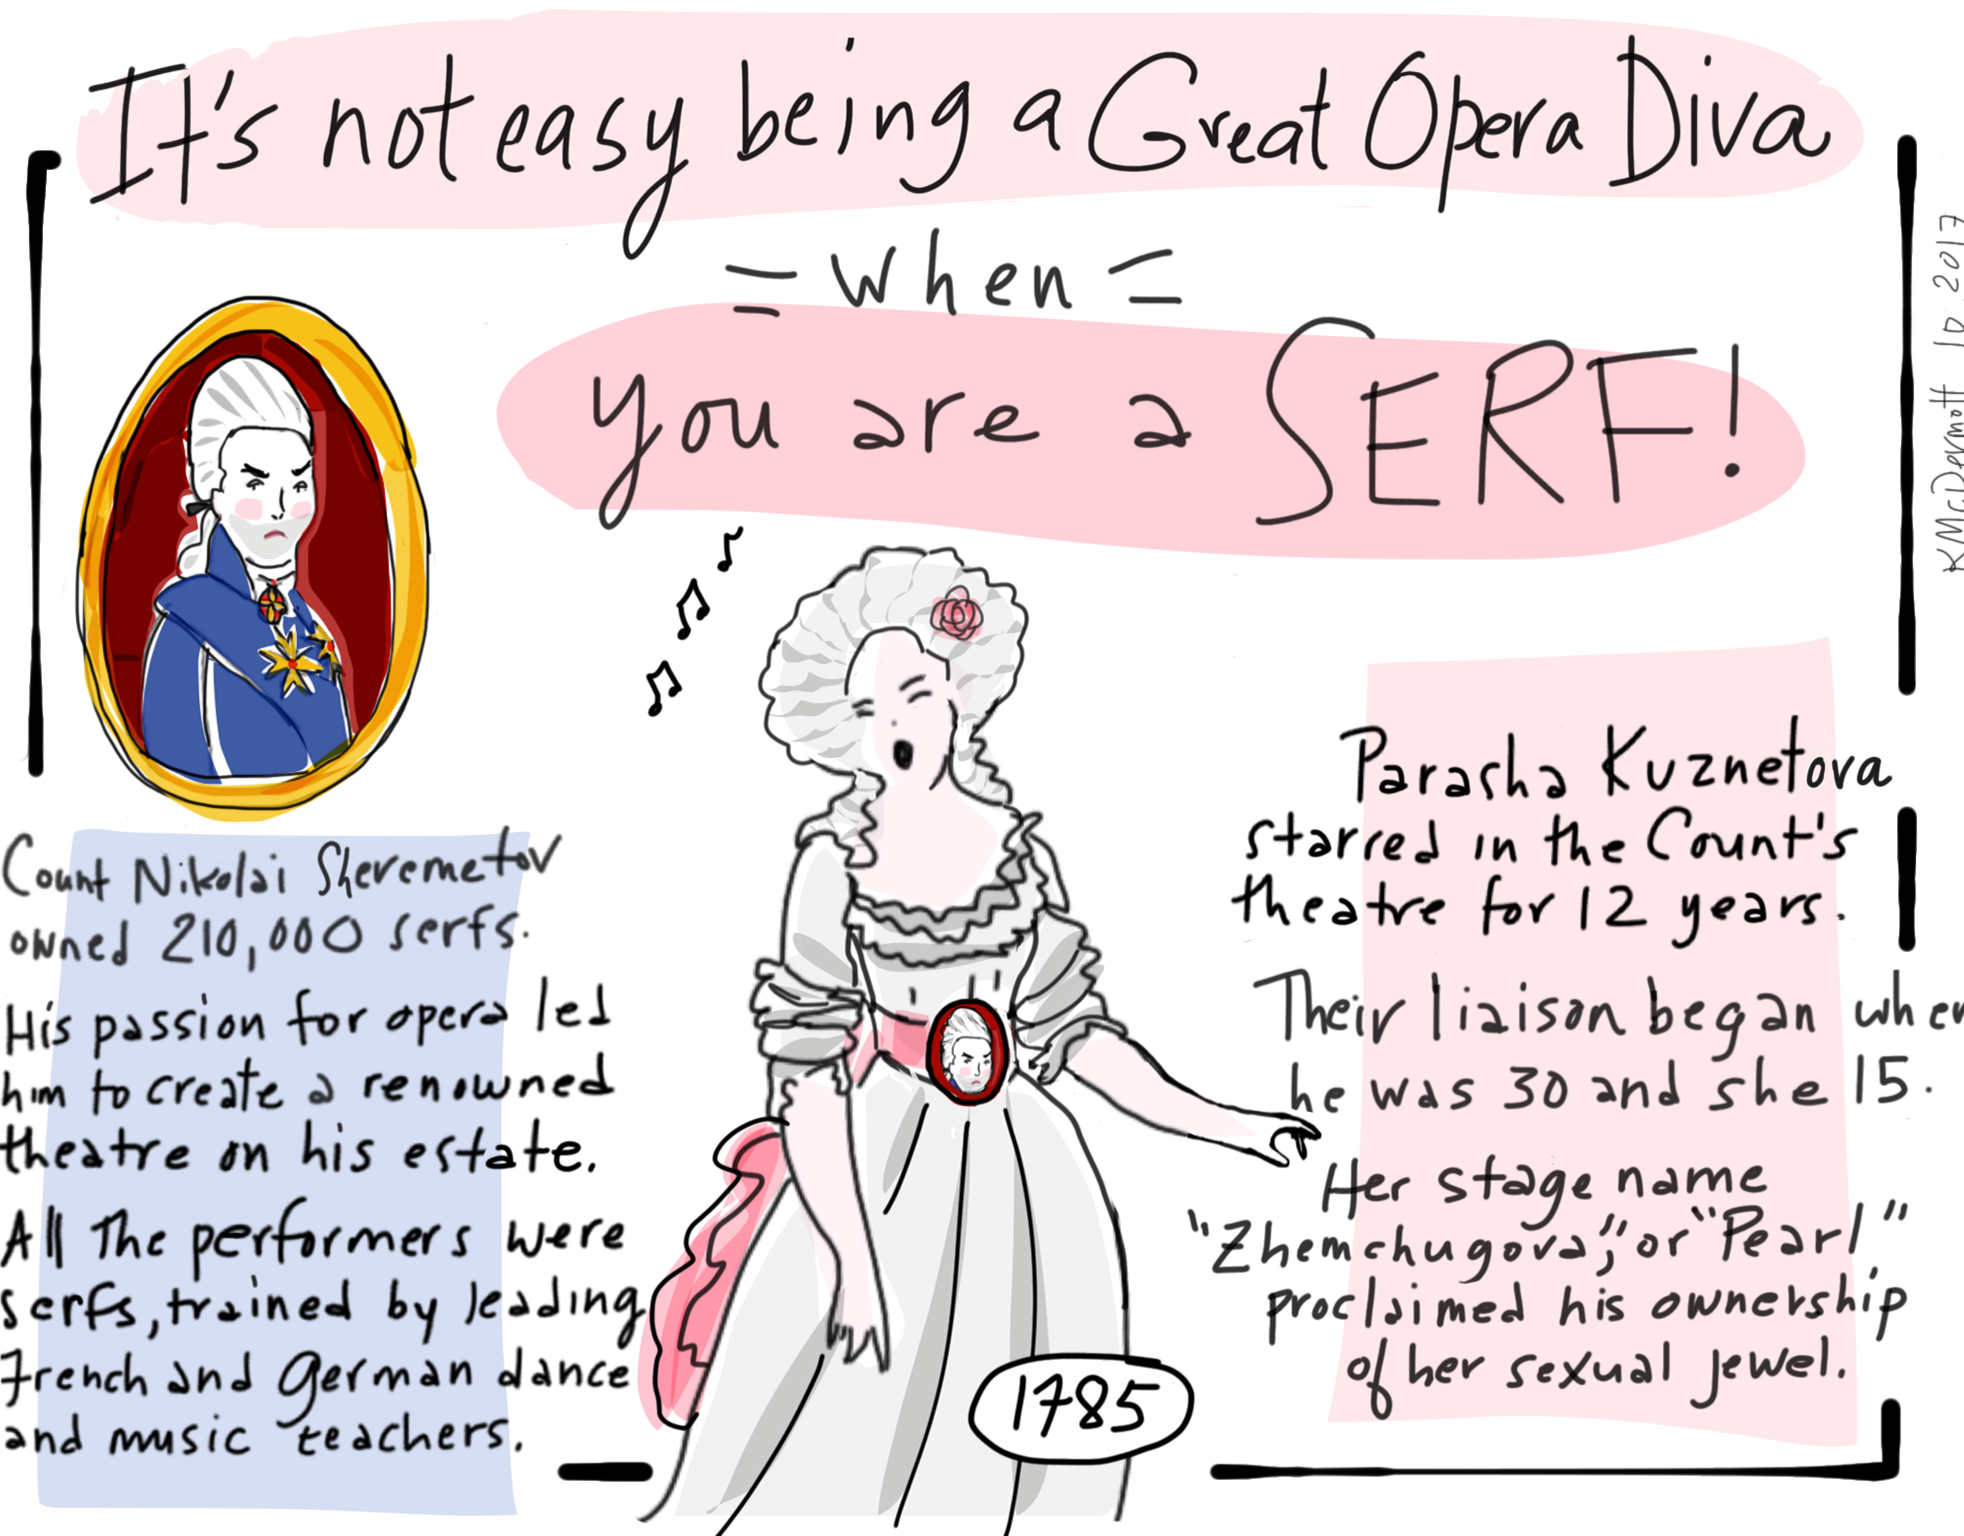 It's not easy being a Great Opera Diva
= when =
you are a SERF!
KMcDermott 10 2017
Count Nikolai Sheremetov
owned 210,000 serfs.
His passion for opera led
him to create a renowned
theatre on his estate.
All The performers were
serfs, trained by leading
French and German dance
and music teachers.
Parasha Kuznetova
starred in the Count's
theatre for 12 years.
Their liaison began when
he was 30 and she 15.
Her stage name
"Zhemchugova," or "Pearl"
proclaimed his ownership
of her sexual jewel.
1785